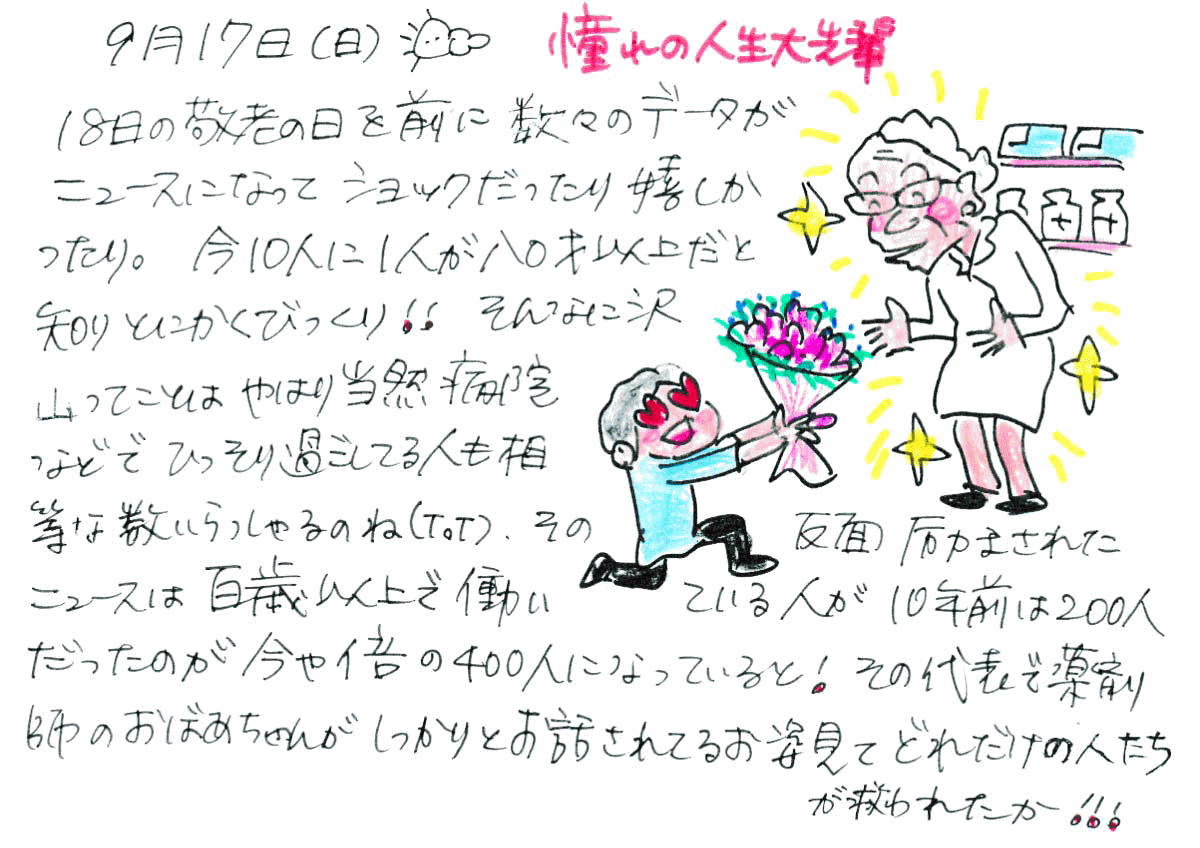 9月17日(日)
憧れの人生大先輩
18日の敬老の日を前に数々のデータが
ニュースになってショックだったり嬉しか
ったり。今10人に1人が八〇才以上だと
知りとにかくびっくり!! そんなに沢
山ってことはやはり当然病院
などでひっそり過ごしてる人も相
等な数いらっしゃるのね(ToT).その 反面励まされた
ニュースは百歳以上で働い ている人が10年前は200人
だったのが今や倍の400人になっていると!その代表で薬剤
師のおばあちゃんがしっかりとお話されてるお姿見てどれだけの人たち
が救われたかー!!!